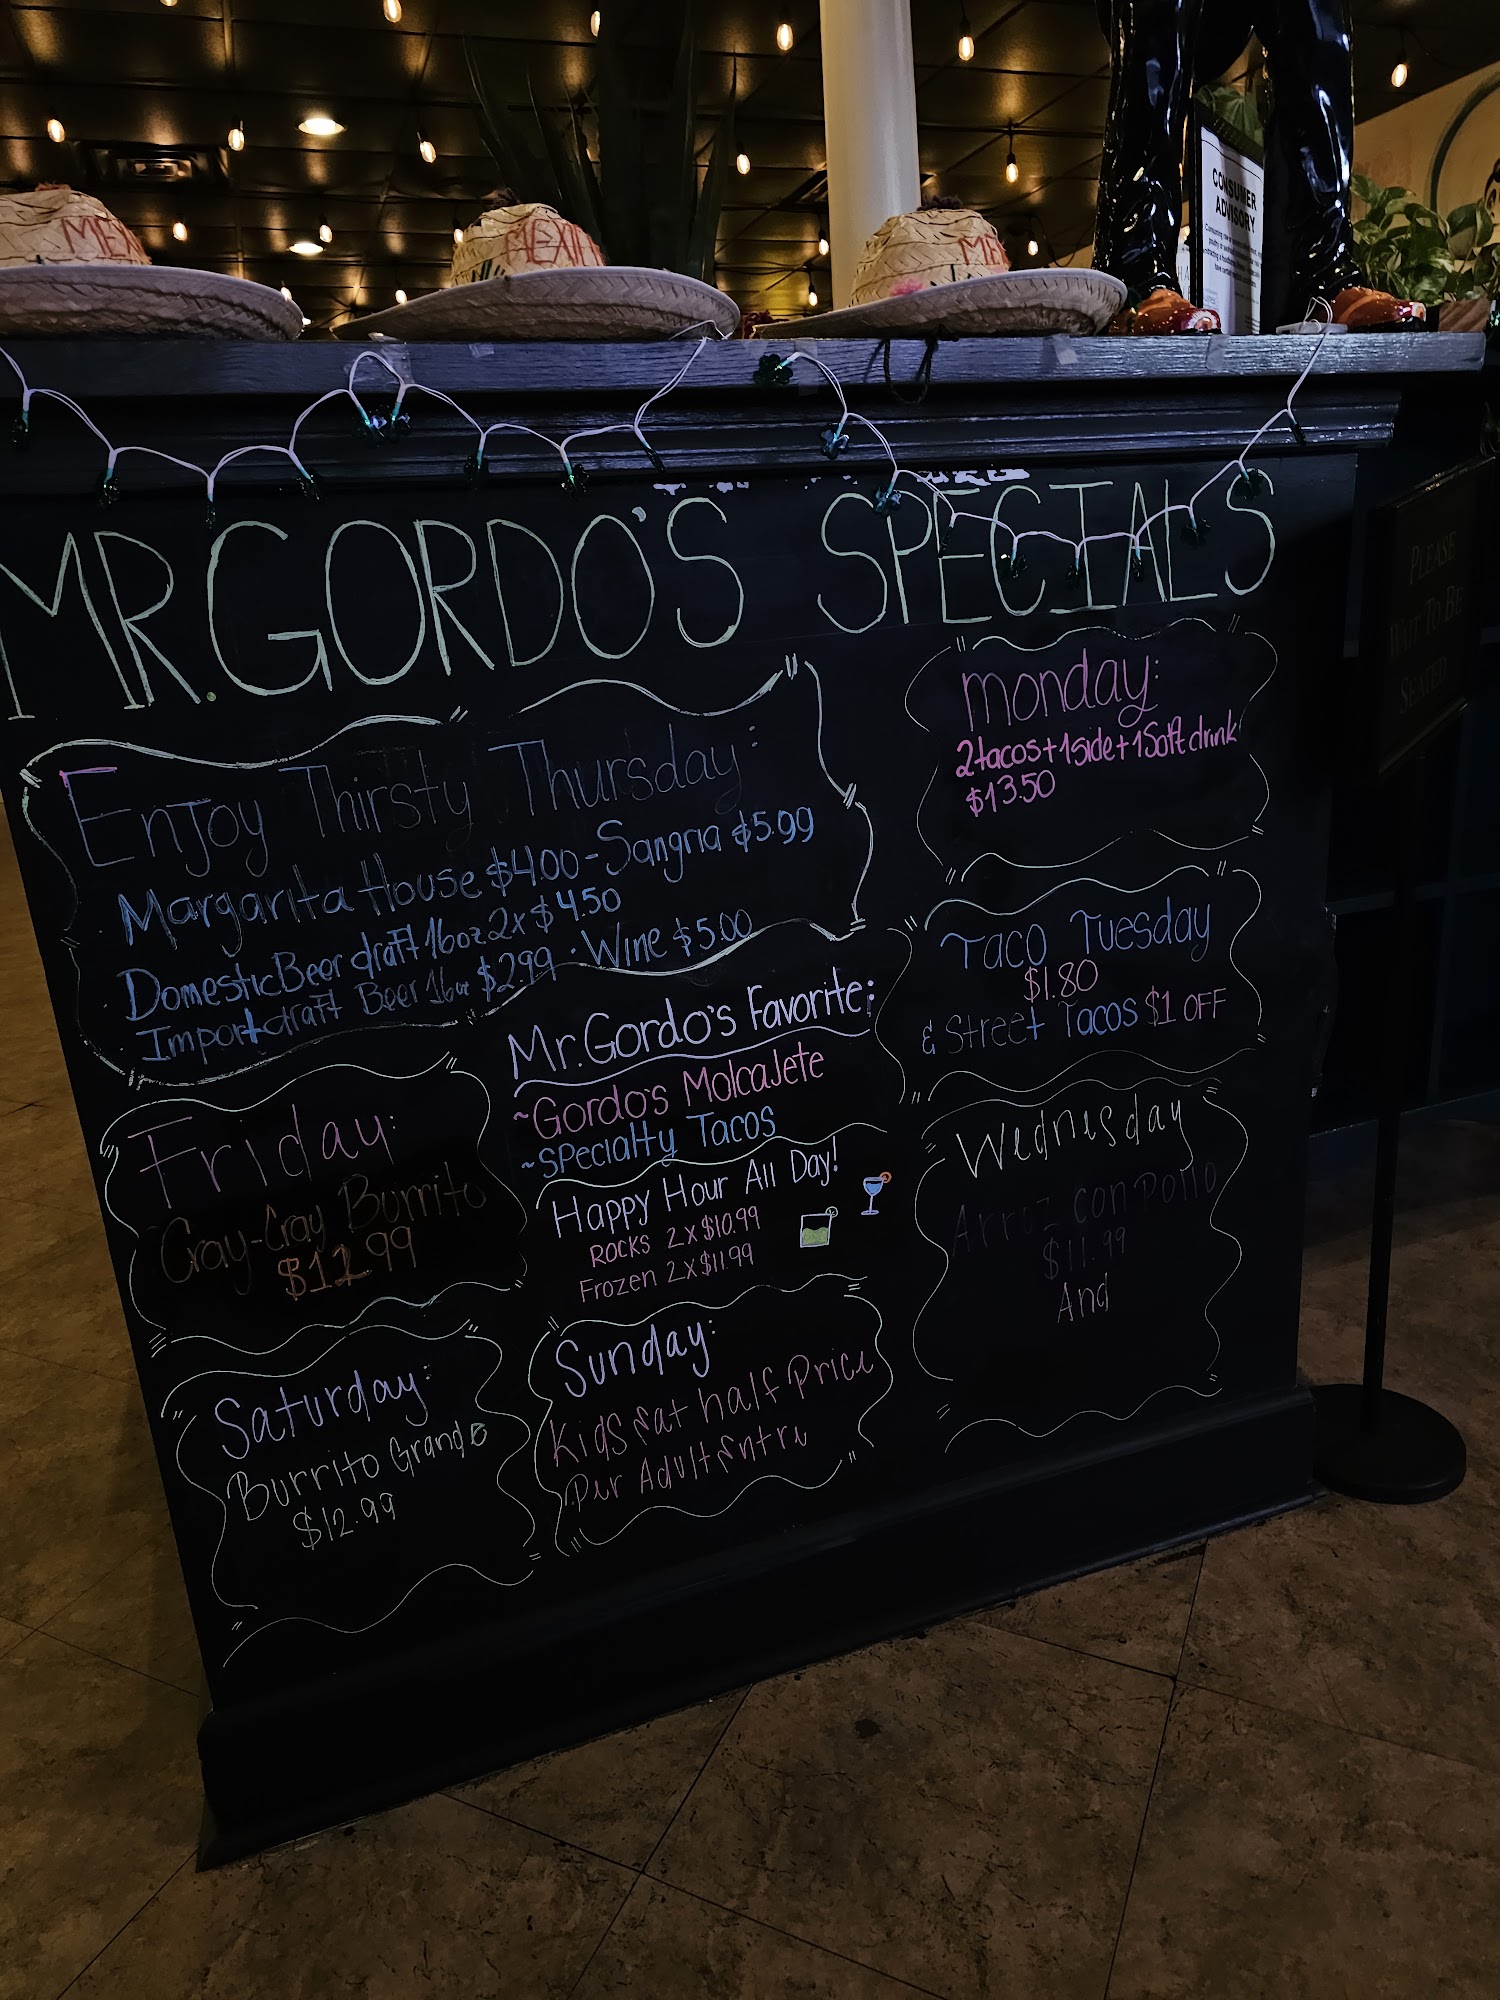 MEXI
CONSUMER
ADVISORY
MR. GORDO'S SPECIALS
Enjoy Thirsty Thursday:
Margarita House $4.00 - Sangria $5.99
Domestic Beer draft 16oz 2x $4.50
Import draft Beer 16oz $2.99 · Wine $5.00
Monday:
2 tacos + 1 side + 1 Soft drink
$13.50
Taco Tuesday
$1.80
& Street Tacos $1 OFF
Wednesday
Arroz con Pollo
$11.99
And
Mr. Gordo's Favorite:
~Gordo's Molcajete
~Specialty Tacos
Happy Hour All Day!
ROCKS 2x$10.99
Frozen 2x$11.99
Friday:
Cray-Cray Burrito
$12.99
Saturday:
Burrito Grande
$12.99
Sunday:
Kids Eat half Price
Per Adult Entre
PLEASE
WAIT TO BE
SEATED